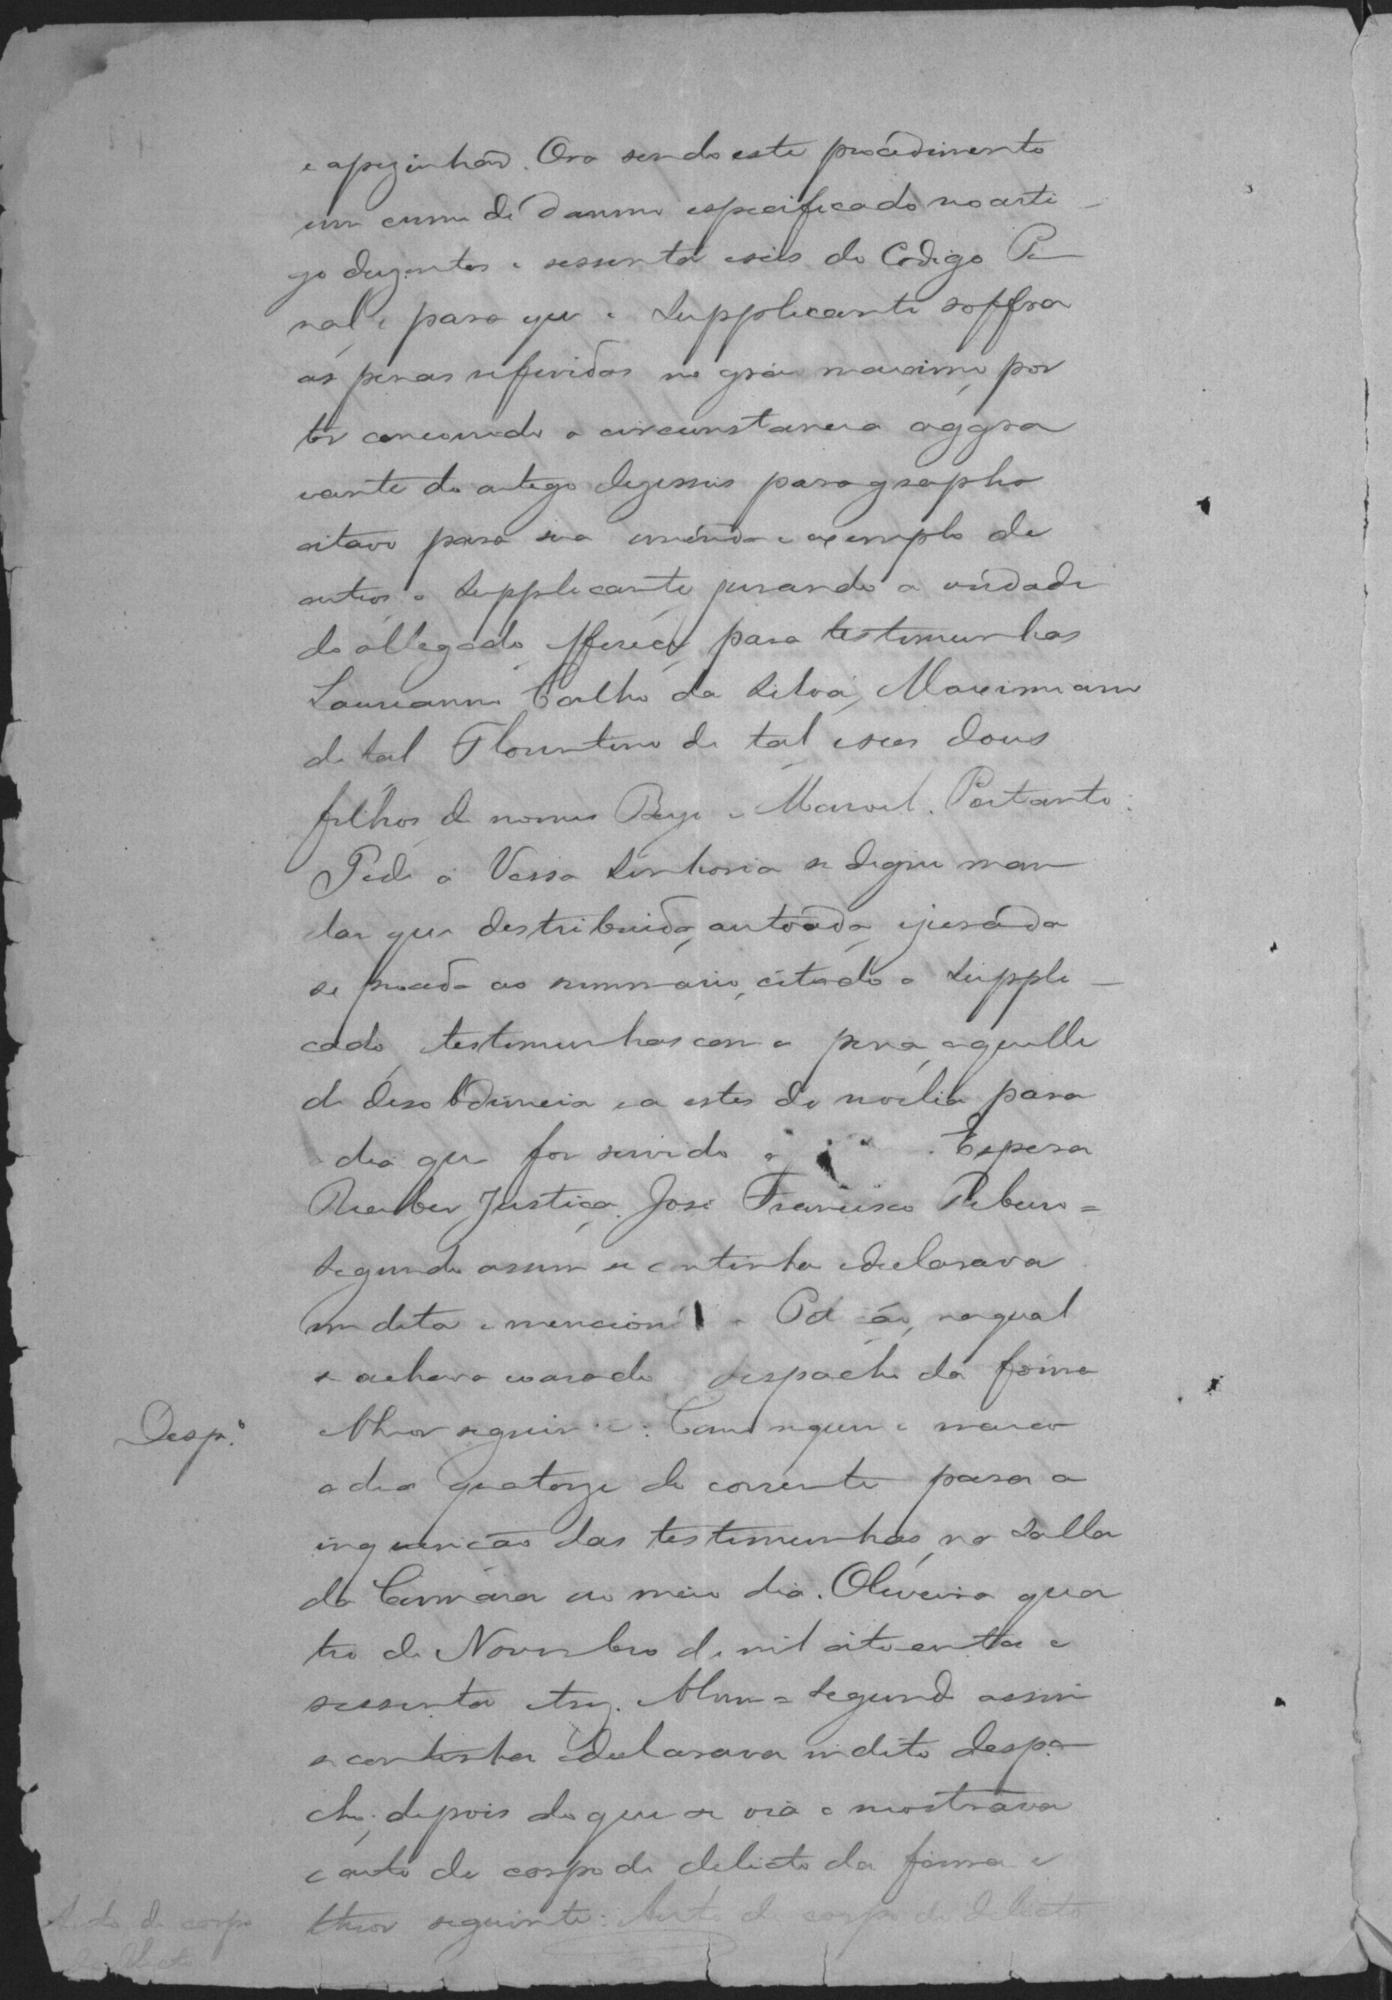 e apezinhou. Ora sendo este procedimento
um crime de damno especificado no arti-
go duzentos e sessenta e seis do Codigo Pe
nal, e para que o Supplicante soffra
as penas referidas no gráu maximo, por
ter concorrido a circunstancia aggra
vante do artigo dezesseis paragrapho
oitavo para sua emenda e exemplo de
outros o Supplicante jurando a verdade
do allegado, offerece para testemunhas
Laureanno Coelho da Silva, Maximiano
de tal Florentino de tal e seus dous
filhos de nomes e Manoel. Portanto:
Pede a Vossa Senhoria se digne man
dar que destribuida, autoada, e jurada
se proceda ao summario, citado o Suppli-
cado, testemunhas com a pena, aquelle
de desobediencia e a estes de revelia para
dia que for servido. Espera
Receber Justiça. José Francisco Ribeiro =
Segundo assim se continha e declarava
em dita e mencion Pet ão, na qual
se achava exarado despacho da forma
e theor seguin e: Como requer e marco
o dia quatorze do corrente para a
inquerição das testemunhas, na Salla
da Camara ao meio dia. Oliveira qua
tro de Novembro de mil oitocentos e
sessenta e trez. = Segundo assim
se continha e declarava em dito despa-
cho; depois do que se via e mostrava
o auto de corpo de delicto da forma e
theor seguinte: Auto de corpo de delicto
Desp.º
Auto de corpo
de delicto